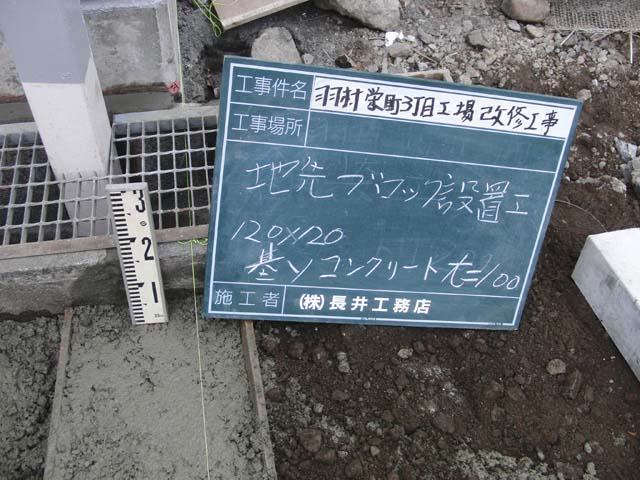 工事件名 羽村栄町3丁目工場改修工事
工事場所
地先ブロック設置工
120×120
基ソコンクリートt=100
施工者 (株)長井工務店
3
2
1